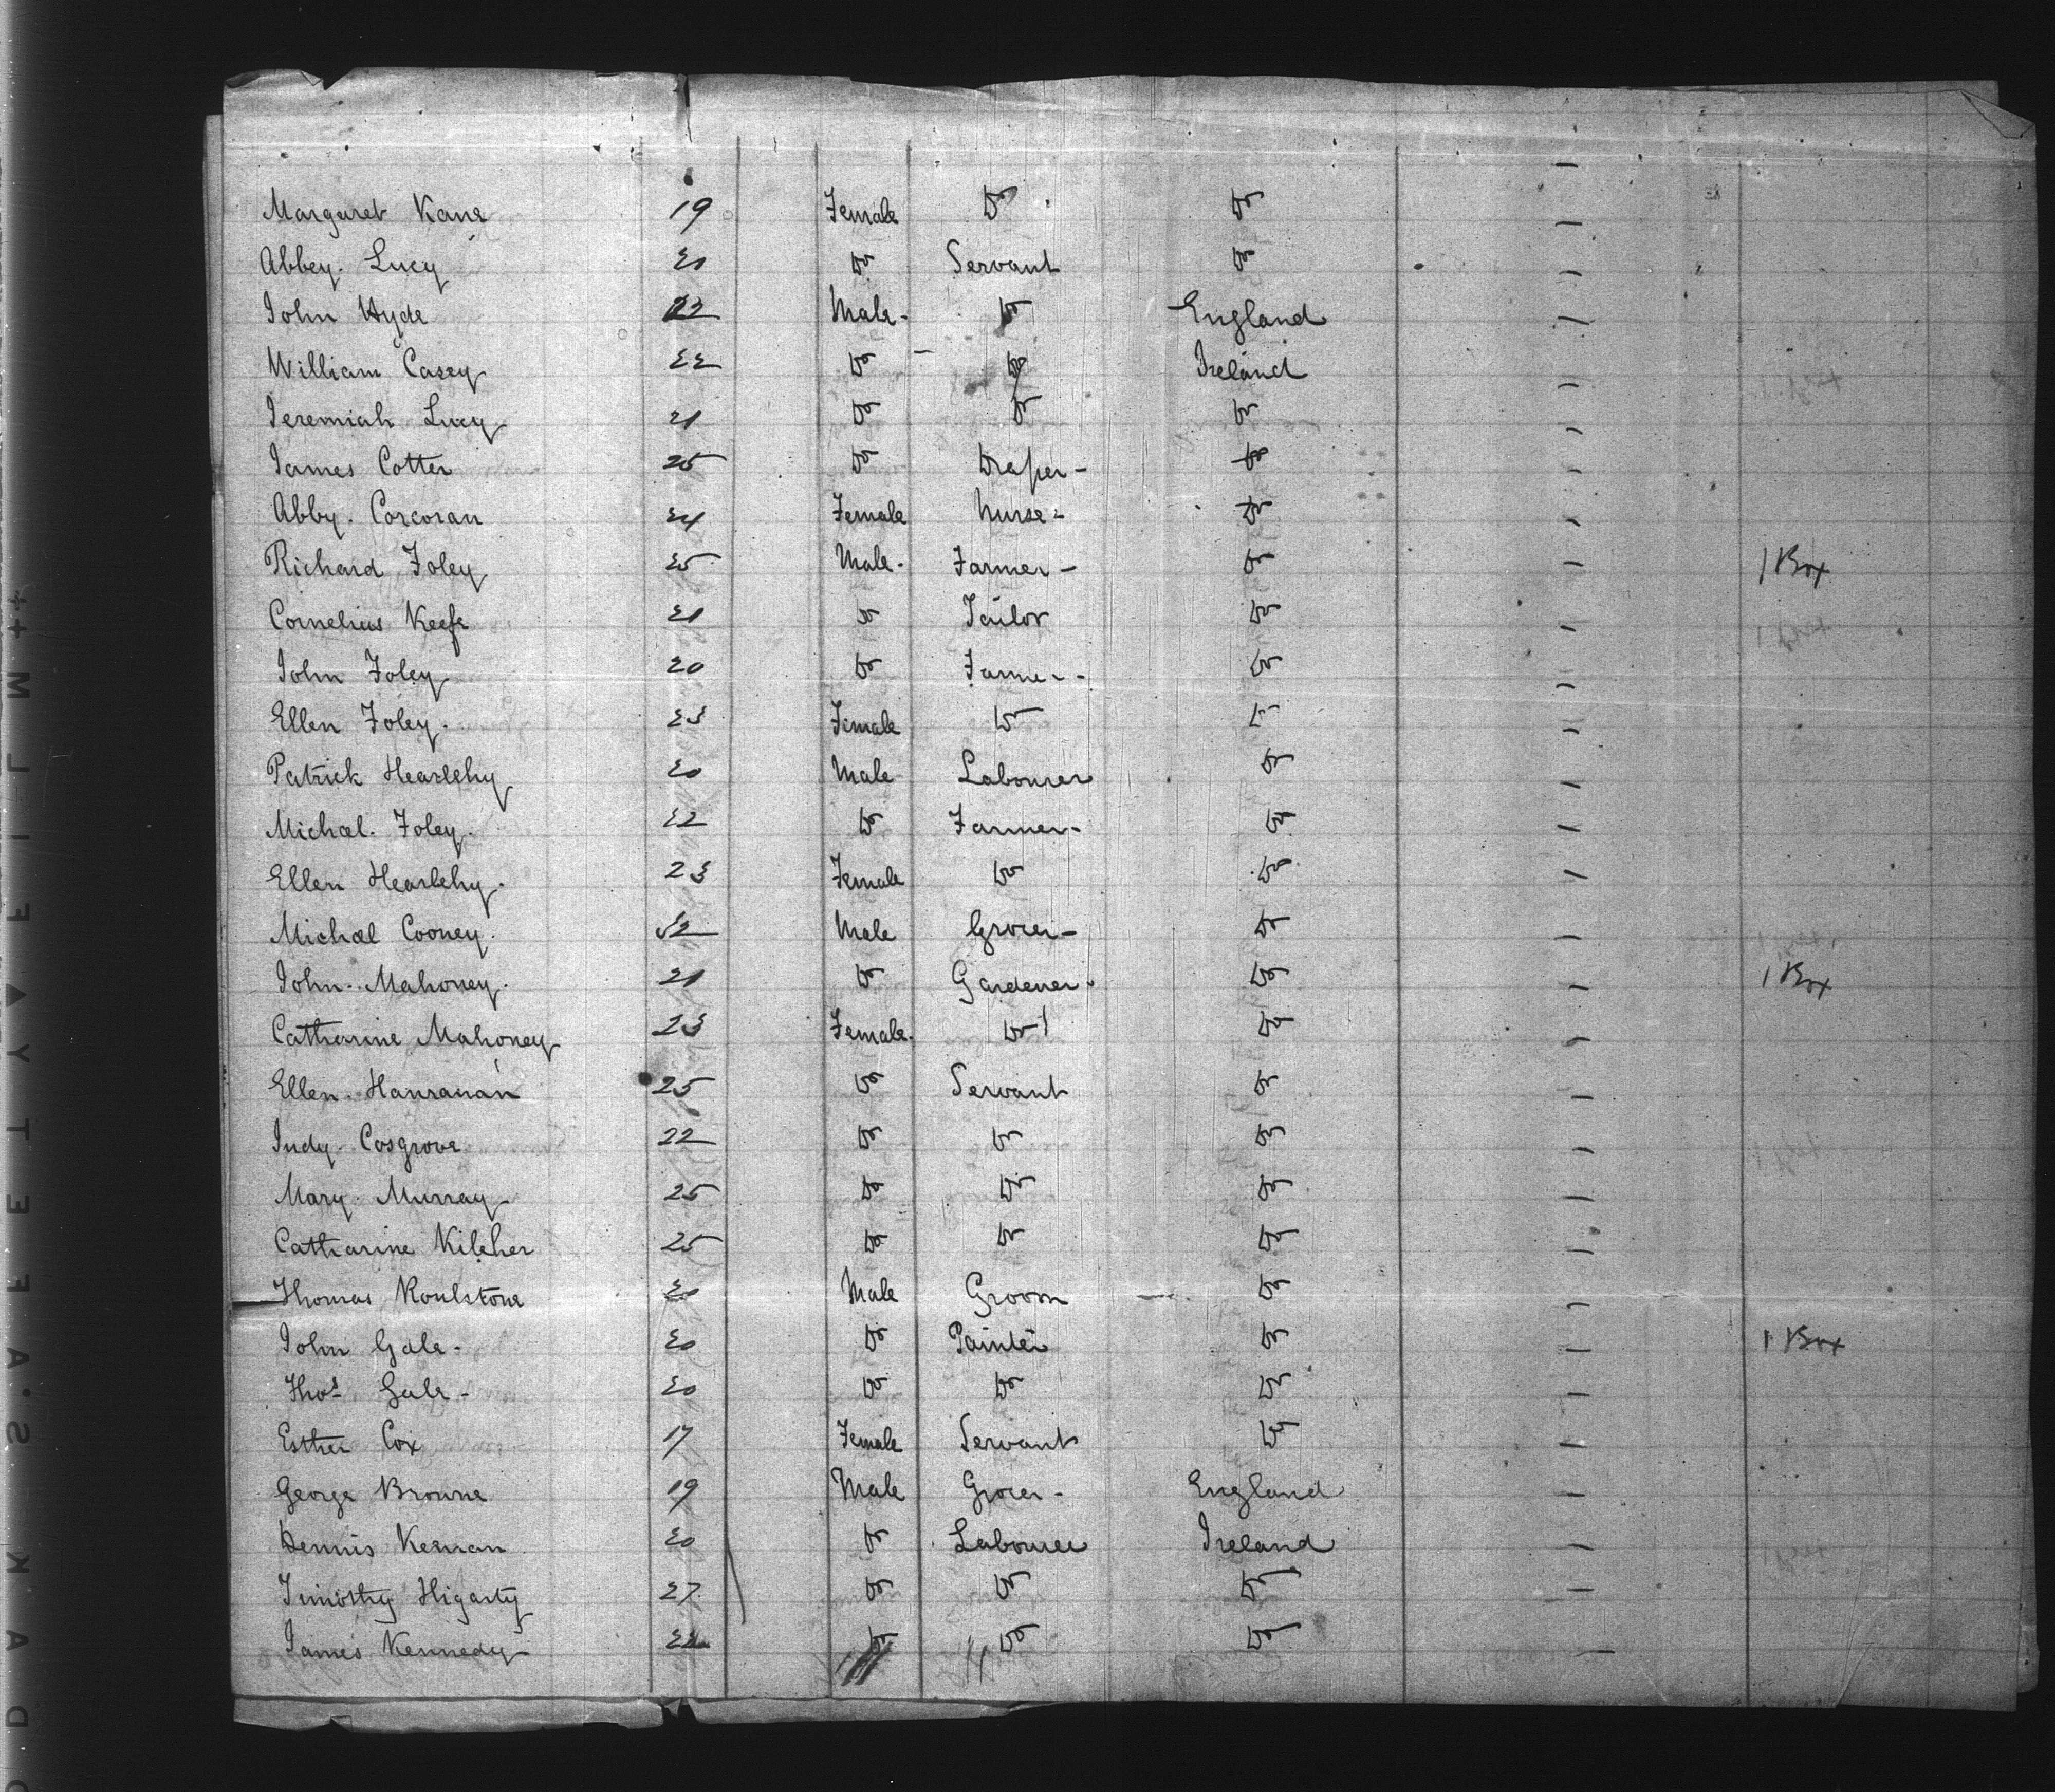 Margaret Kane 19 Female Do Do
Abbey Lucy 21 Do Servant Do
John Hyde 22 Male Do England
William Casey 22 Do Do Ireland
Jeremiah Lucy 21 Do Do Do
James Cotter 25 Do Draper Do
Abby Corcoran 24 Female Nurse Do
Richard Foley 25 Male Farmer Do 1 Box
Cornelius Keefe 21 Do Tailor Do
John Foley 20 Do Farmer Do
Ellen Foley 23 Female Do Do
Patrick Hearlehy 20 Male Labourer Do
Michael Foley 22 Do Farmer Do
Ellen Hearlehy 23 Female Do Do
Michael Cooney 52 Male Grocer Do
John Mahoney 21 Do Gardener Do 1 Box
Catharine Mahoney 23 Female Do Do
Ellen Hanranan 25 Do Servant Do
Judy Cosgrove 22 Do Do Do
Mary Murray 25 Do Do Do
Catharine Kilcher 25 Do Do Do
Thomas Roulstone Male Groom Do
John Gale 20 Do Painter Do 1 Box
Thos Gale 20 Do Do Do
Esther Cox 17 Female Servant Do
George Browne 19 Male Grocer England
Dennis Kernan 20 Do Labourer Ireland
Timothy Higarty 27 Do Do Do
James Kennedy 22 Do Do Do